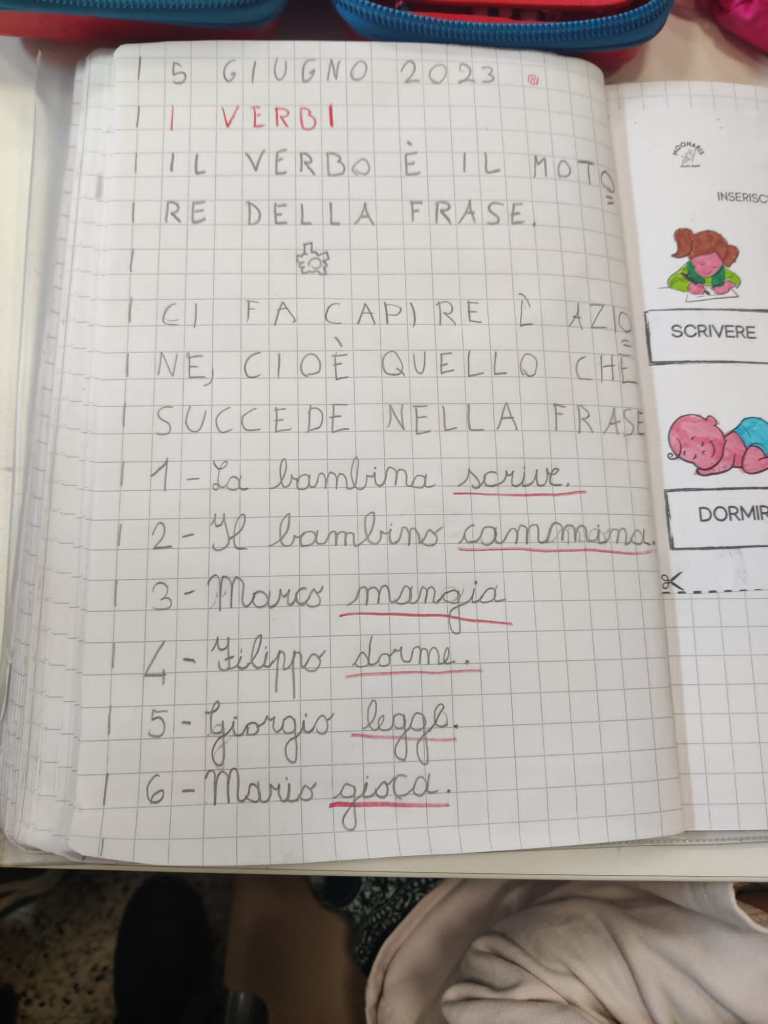 5 GIUGNO 2023
I VERBI
IL VERBO È IL MOTO
RE DELLA FRASE.
CI FA CAPIRE L' AZIO
NE, CIOÈ QUELLO CHE
SUCCEDE NELLA FRASE
1-La bambina scrive.
2-Il bambino cammina.
3-Marco mangia
4-Filippo dorme.
5-Giorgio legge.
6-Mario gioca.
INSERISC
SCRIVERE
DORMIR